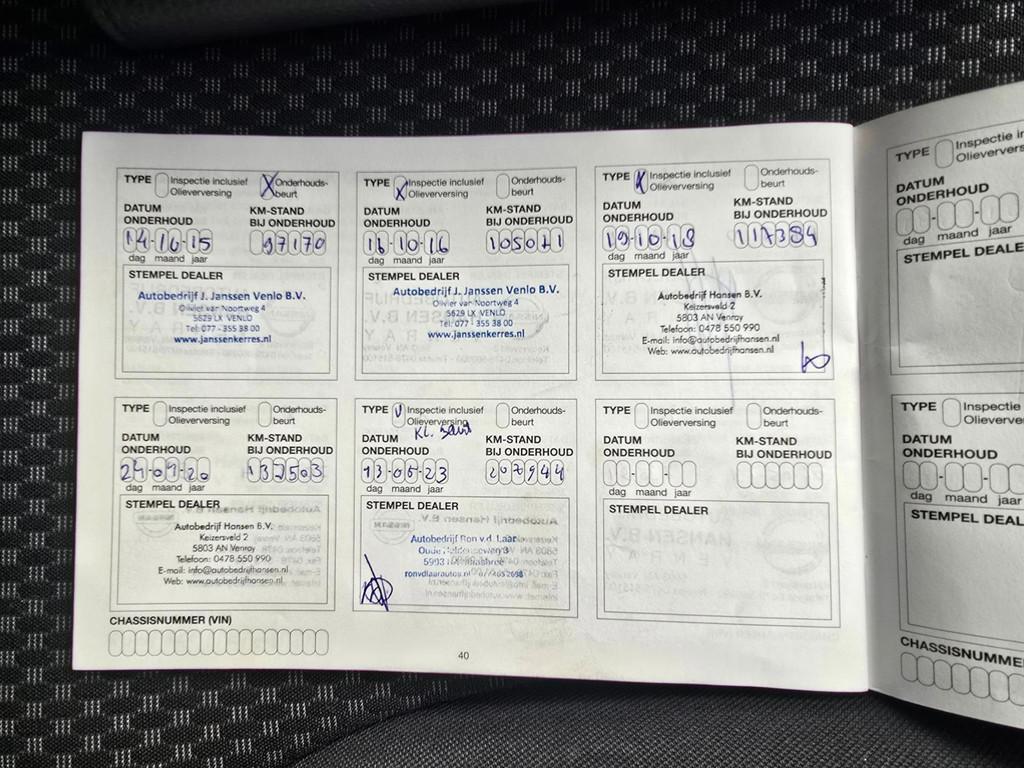 TYPE Inspectie inclusief Olieverversing X Onderhouds-beurt
DATUM ONDERHOUD
KM-STAND BIJ ONDERHOUD
14-10-15
97170
dag maand jaar
STEMPEL DEALER
Autobedrijf J. Janssen Venlo B.V.
Olivier van Noortweg 4
LX VENLO
Tel: 077 - 355 38 00
www.janssenkerres.nl
TYPE X Inspectie inclusief Olieverversing Onderhouds-beurt
DATUM ONDERHOUD
KM-STAND BIJ ONDERHOUD
-10-16
105011
dag maand jaar
STEMPEL DEALER
Autobedrijf J. Janssen Venlo B.V.
Olivier van Noortweg 4
LX VENLO
Tel: 077 - 355 38 00
www.janssenkerres.nl
TYPE X Inspectie inclusief Olieverversing Onderhouds-beurt
DATUM ONDERHOUD
KM-STAND BIJ ONDERHOUD
19-10-18
117384
dag maand jaar
STEMPEL DEALER
Autobedrijf Hansen B.V.
Keizersveld 2
5803 AN Venray
Telefoon: 0478 550 990
E-mail: info@autobedrijfhansen.nl
Web: www.autobedrijfhansen.nl
TYPE Inspectie inclusief Olieverversing Onderhouds-beurt
DATUM ONDERHOUD
KM-STAND BIJ ONDERHOUD
24-09-20
137503
dag maand jaar
STEMPEL DEALER
Autobedrijf Hansen B.V.
Keizersveld 2
5803 AN Venray
Telefoon: 0478 550 990
E-mail: info@autobedrijfhansen.nl
Web: www.autobedrijfhansen.nl
TYPE V Inspectie inclusief Olieverversing Onderhouds-beurt
KL. beurt
DATUM ONDERHOUD
KM-STAND BIJ ONDERHOUD
13-06-23
207944
dag maand jaar
STEMPEL DEALER
Autobedrijf Ron v.d. Laar
Oude
5993
ronvdlaarautos.nl
TYPE Inspectie inclusief Olieverversing Onderhouds-beurt
DATUM ONDERHOUD
KM-STAND BIJ ONDERHOUD
dag maand jaar
STEMPEL DEALER
CHASSISNUMMER (VIN)
40
TYPE Inspectie inclusief
Olieververs
DATUM
ONDERHOUD
dag maand jaar
STEMPEL DEALE
TYPE Inspectie
Olieverve
DATUM
ONDERHOUD
dag maand jaar
STEMPEL DEAL
CHASSISNUMME